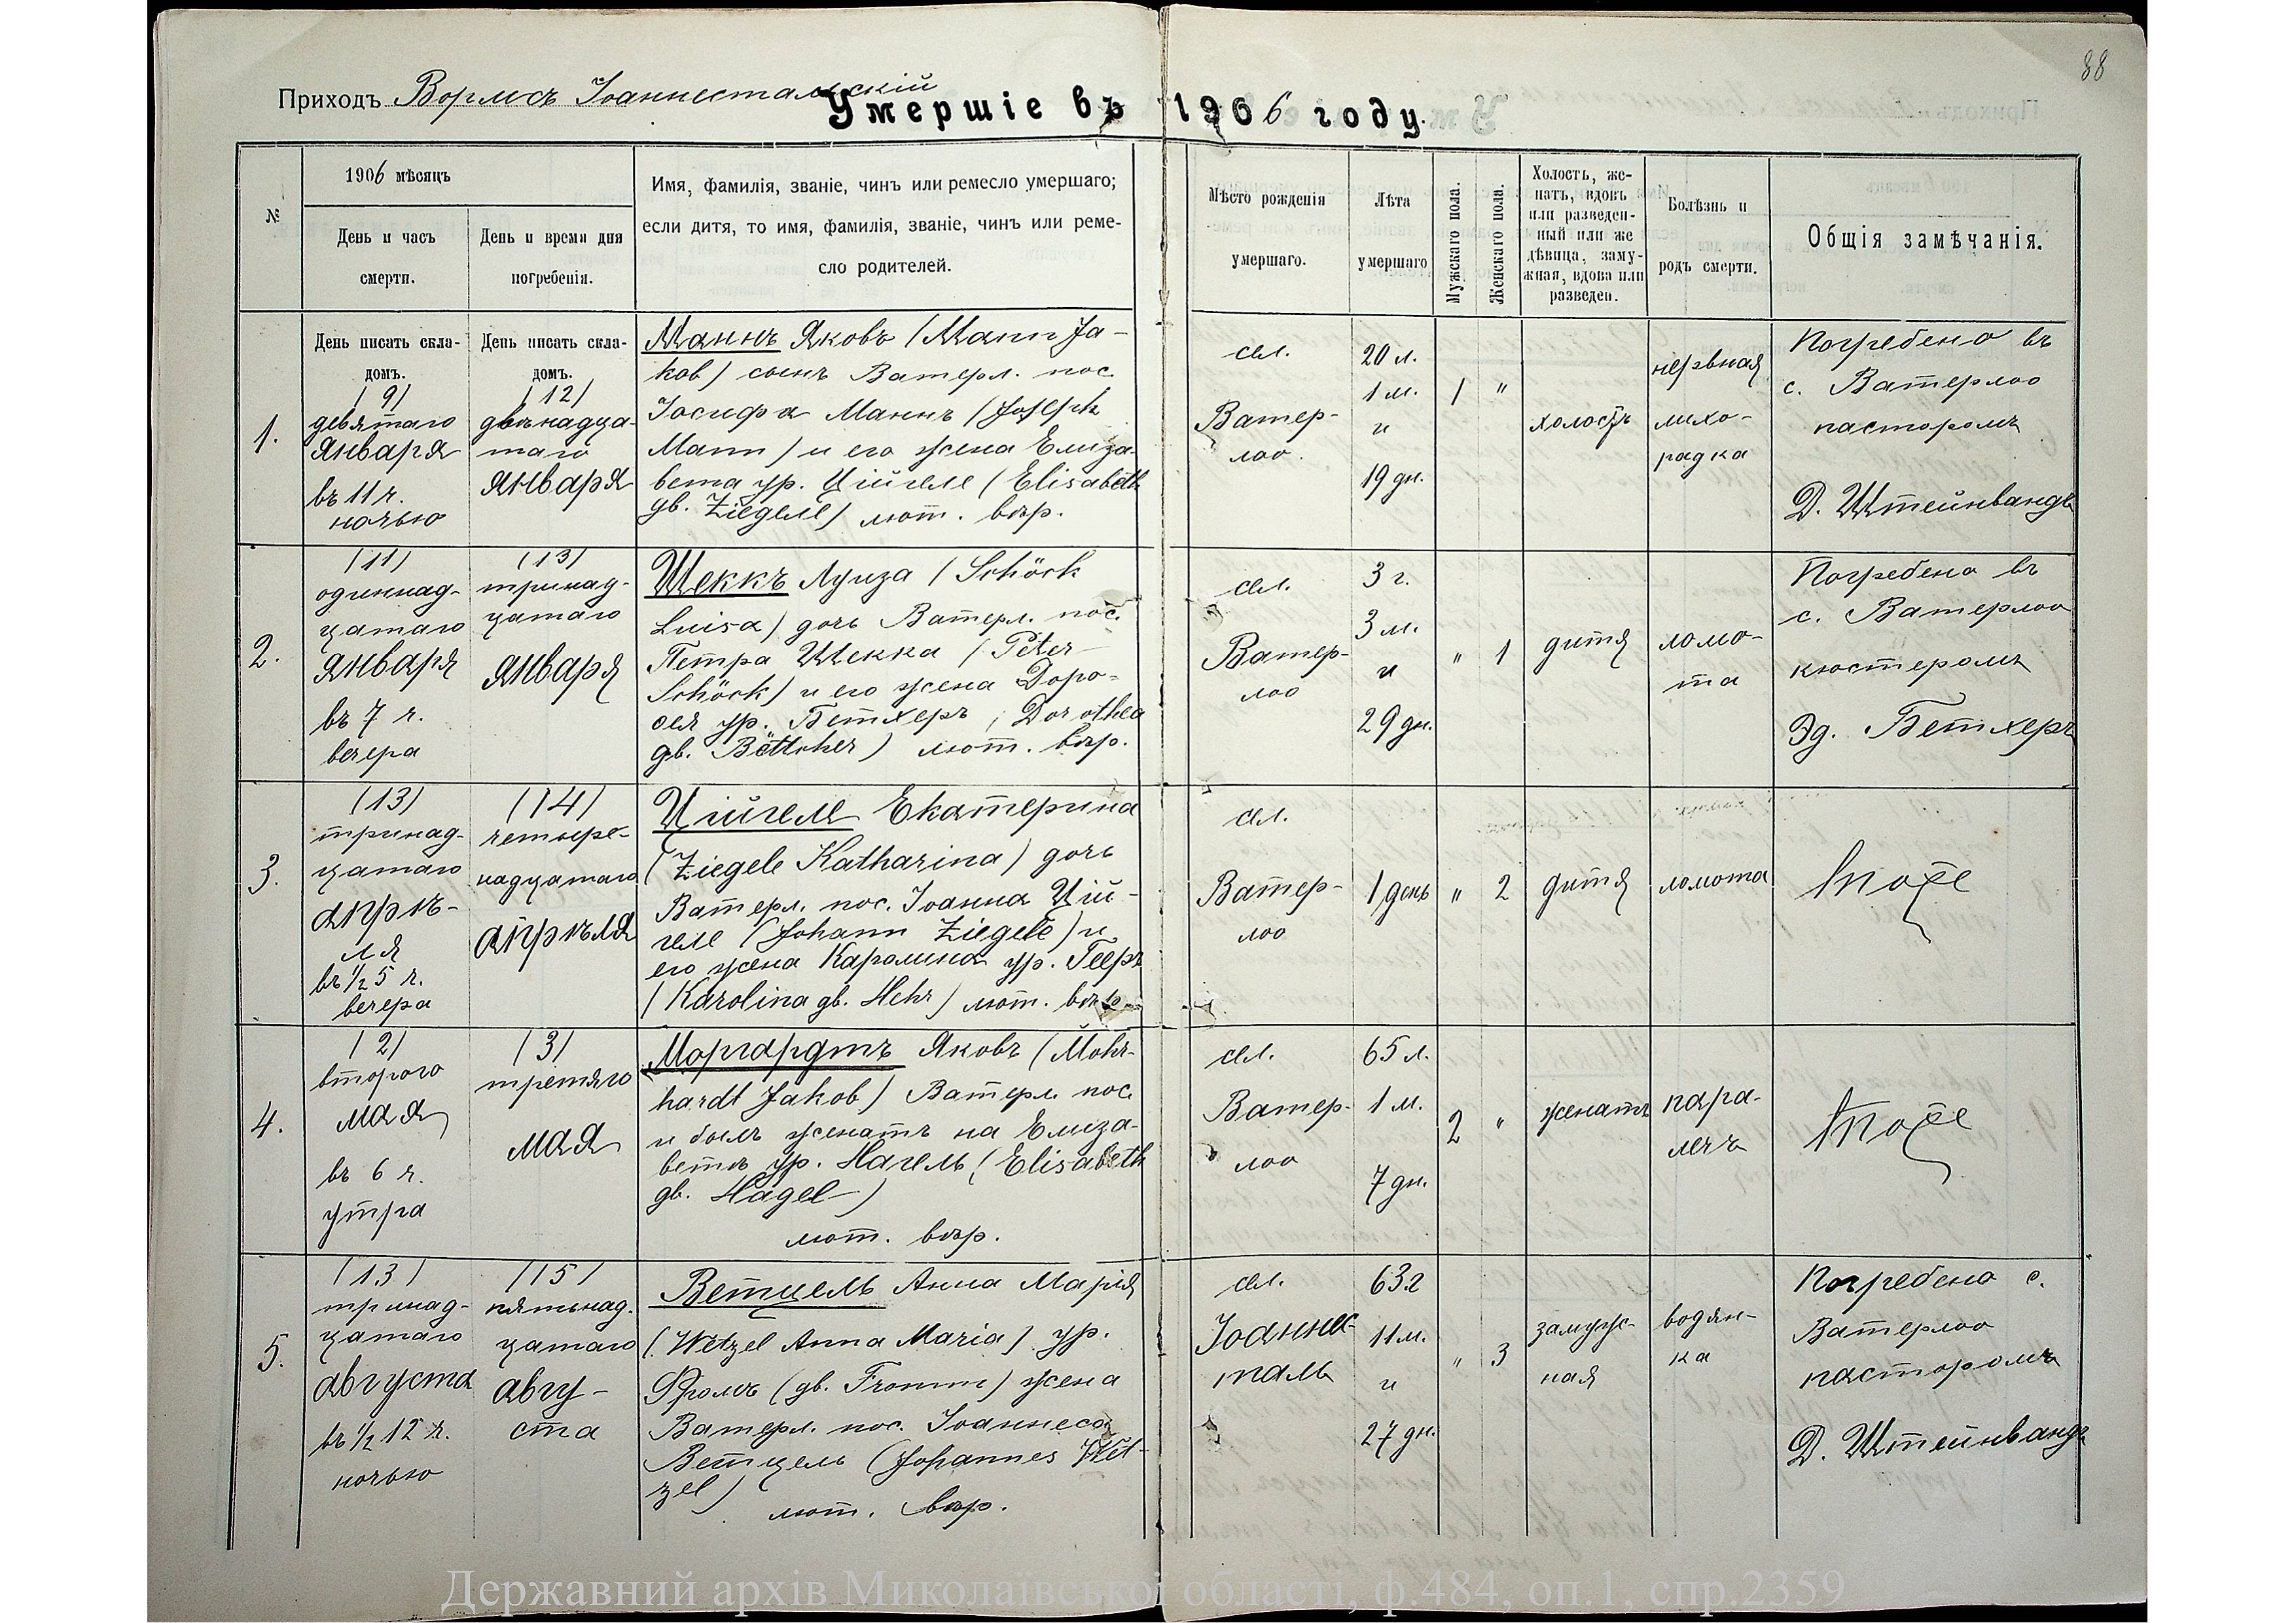 88
Приходъ Вормсъ Іоаннестальскій
Умершіе въ 1906 году.
№
1906 мѣсяцъ
День и часъ
смерти.
День и время дня
погребенія.
Имя, фамилія, званіе, чинъ или ремесло умершаго;
если дитя, то имя, фамилія, званіе, чинъ или реме-
сло родителей.
Мѣсто рожденія
умершаго.
Лѣта
умершаго
Мужскаго пола.
Женскаго пола.
Холостъ, же-
натъ, вдовъ
или разведен-
ный или же
дѣвица, заму-
жняя, вдова или
разведен.
Болѣзнь и
родъ смерти.
Общія замѣчанія.
1.
День писать скла-
домъ.
(9)
девятаго
января
въ 11 ч.
ночью
День писать скла-
домъ.
(12)
двѣнадца-
таго
января
Маннъ Яковъ (Mann Ja-
kob) сынъ Ватерл. пос.
Іосифа Маннъ (Joseph
Mann) и его жена Елиза-
вета ур. Ційгеле (Elisabeth
gb. Ziegele) лют. вѣр.
сел.
Ватер-
лоо.
20 л.
1 м.
и
19 дн.
1
"
холостъ
нервная
лихо-
радка
Погребено въ
с. Ватерлоо
пасторомъ
Д. Штейнвандъ
2.
(11)
одиннад-
цатаго
января
въ 7 ч.
вечера
(13)
тринад-
цатаго
января
Шеккъ Луиза (Schöck
Luisa) дочь Ватерл. пос.
Петра Шекка (Peter
Schöck) и его жена Доро-
ѳея ур. Бетхеръ (Dorothea
gb. Böttcher) лют. вѣр.
сел.
Ватер-
лоо
3 г.
3 м.
и
29 дн.
"
1
дитя
ломо-
та
Погребено въ
с. Ватерлоо
кюстеромъ
Эд. Бетхеръ
3.
(13)
тринад-
цатаго
апрѣ-
ля
въ 1/2 5 ч.
вечера
(14)
четыре-
надцатаго
апрѣля
Ційгеле Екатерина
(Ziegele Katharina) дочь
Ватерл. пос. Іоанна Цій-
геле (Johann Ziegele) и
его жена Каролина ур. Гееръ
(Karolina gb. Hehr) лют. вѣр.
сел.
Ватер-
лоо
1 день
"
2
дитя
ломота
Тоже
4.
(2)
второго
мая
въ 6 ч.
утра
(3)
третяго
мая
Моргардтъ Яковъ (Mohr-
hardt Jakob) Ватерл. пос.
и былъ женатъ на Елиза-
ветѣ ур. Нагель (Elisabeth
gb. Nagel)
лют. вѣр.
сел.
Ватер-
лоо
65 л.
1 м.
7 дн.
2
"
женатъ
пара-
личъ
Тоже
5.
(13)
тринад-
цатаго
августа
въ 1/2 12 ч.
ночью
(15)
пятьнад-
цатаго
авгу-
ста
Ветцель Анна Марія
(Wetzel Anna Maria) ур.
Фромъ (gb. Fromm) жена
Ватерл. пос. Іоаннеса
Ветцель (Johannes Wet-
zel)
лют. вѣр.
сел.
Іоаннес-
таль
63 г
11 м.
и
27 дн.
"
3
замуж-
ная
водян-
ка
Погребено с.
Ватерлоо
пасторомъ
Д. Штейнвандъ
Державний архів Миколаївської області, ф.484, оп.1, спр.2359